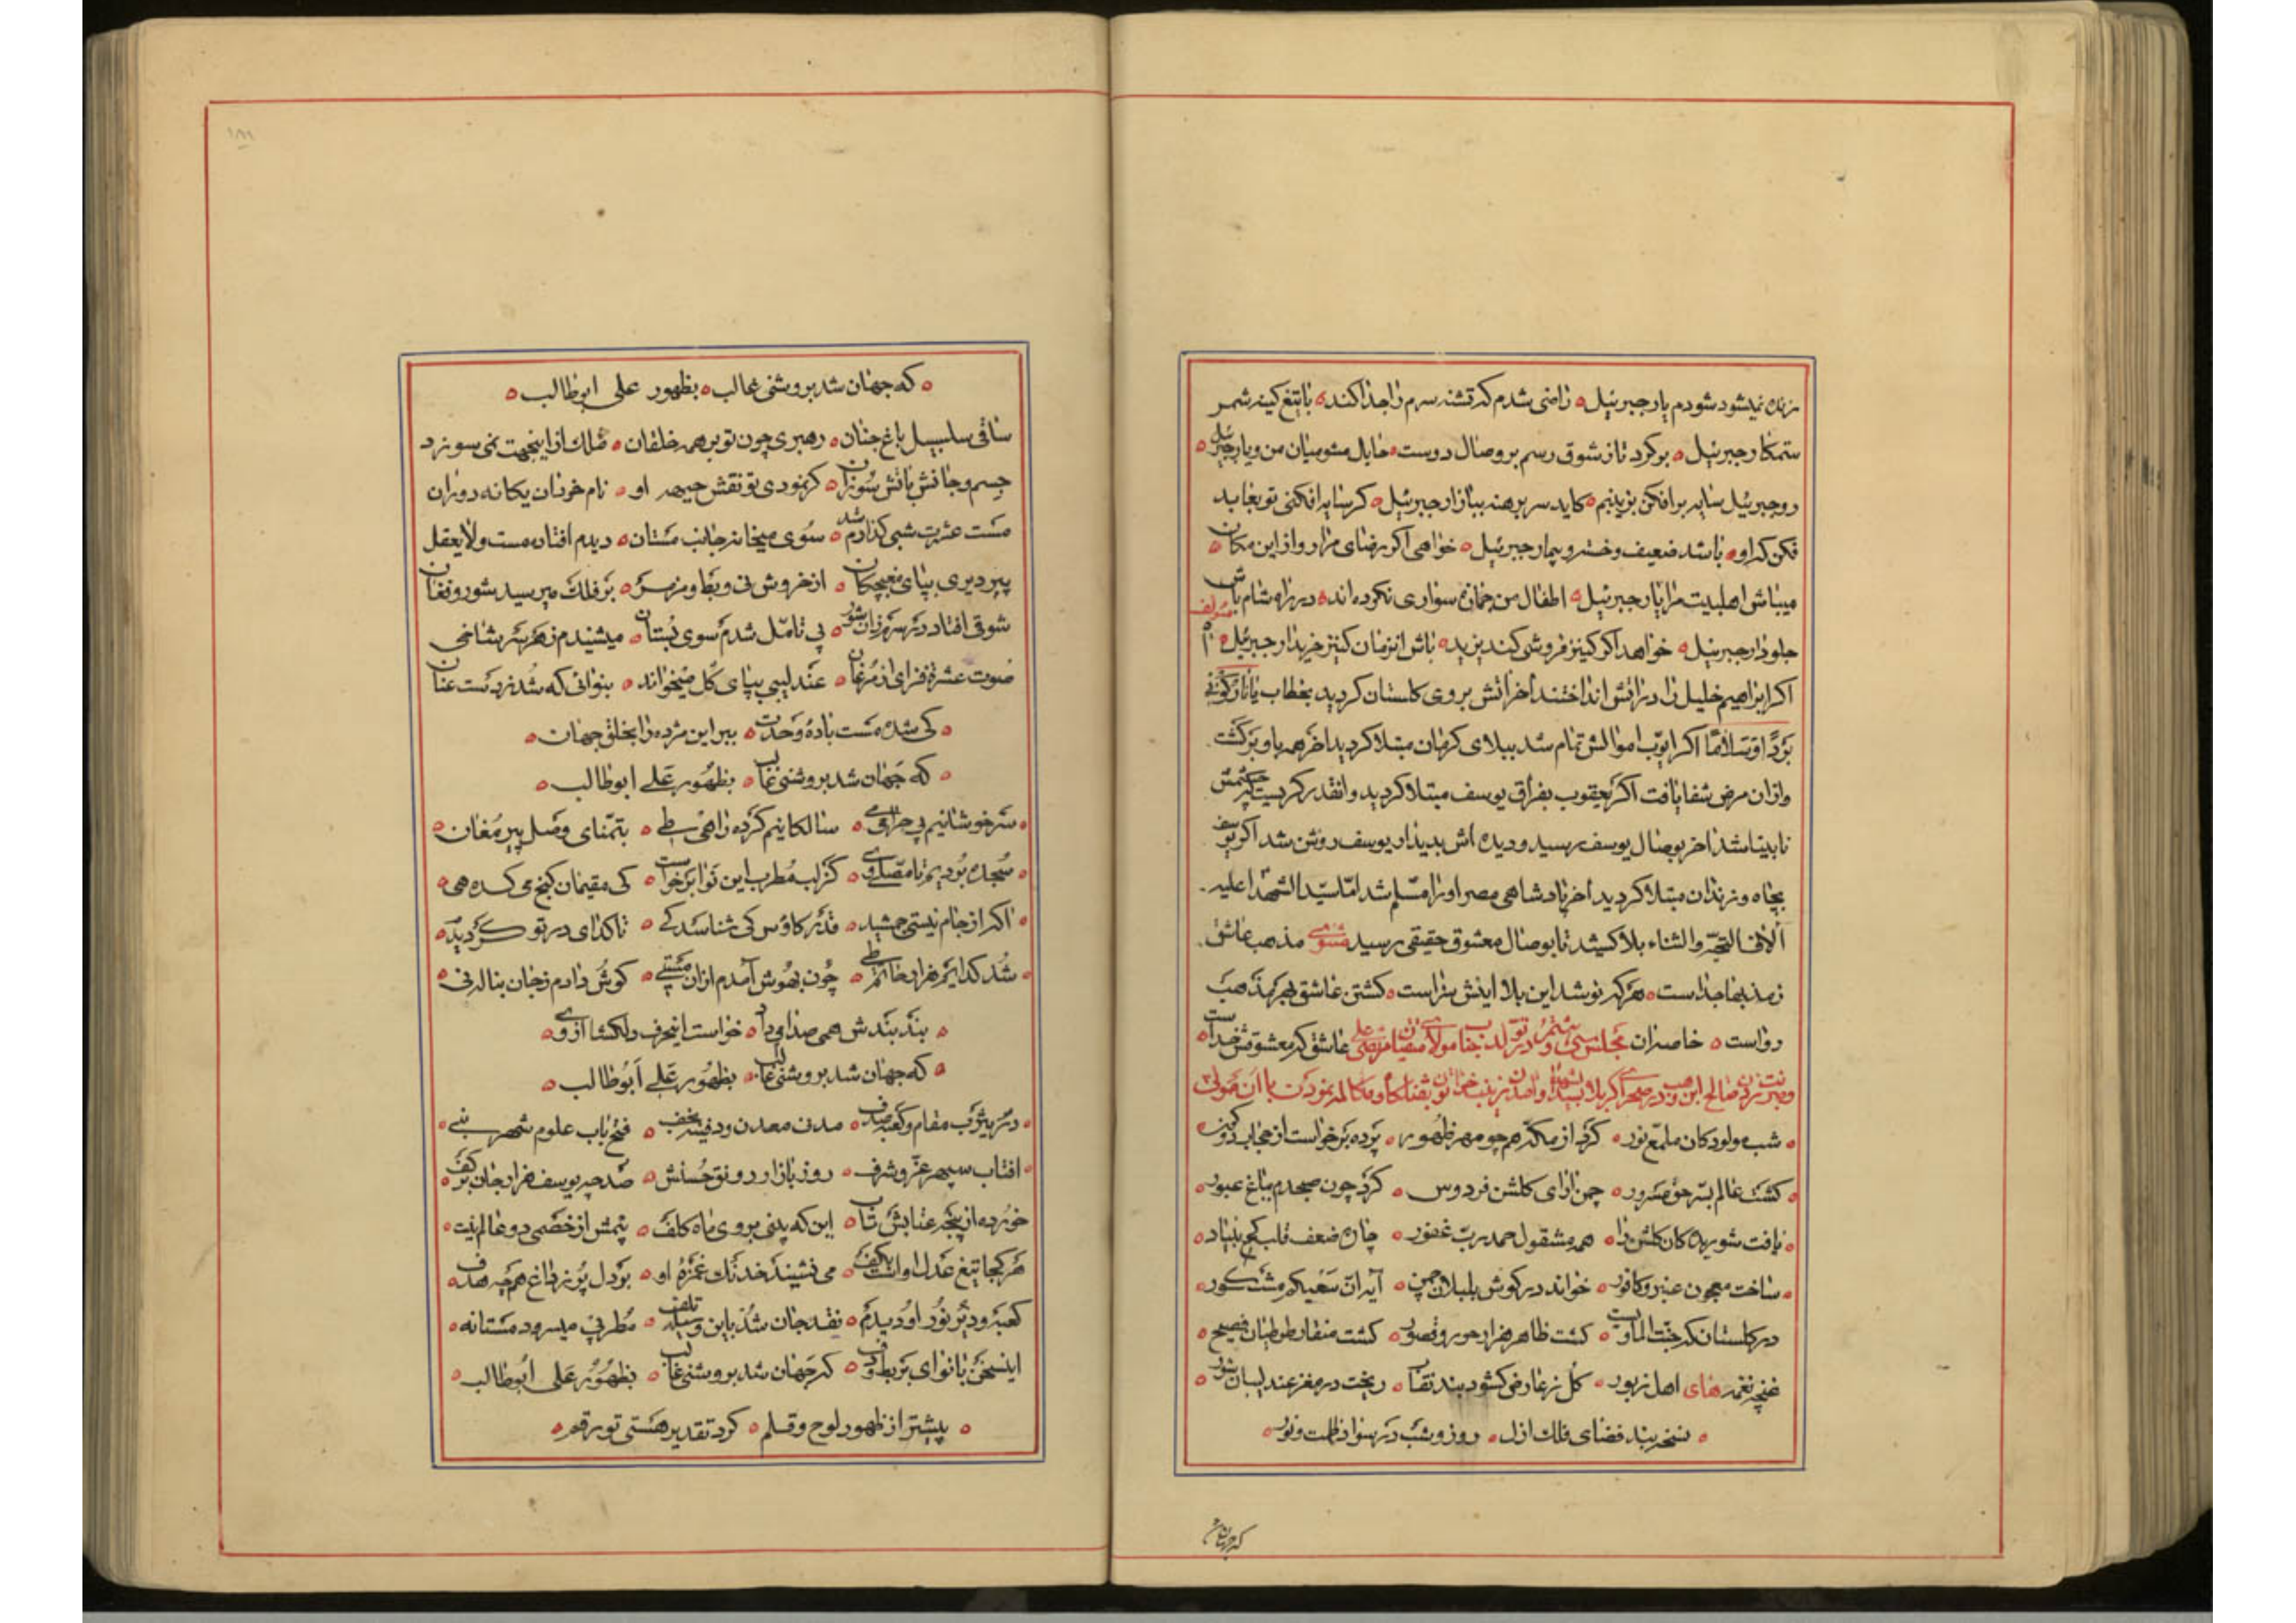 زنده نمیشود شودم یار جبرئیل ه راضی شدم که تشنه سرم را جدا کند ه با تیغ کینه شمر
ستمکار جبرئیل ه برکرد تا ز شوق رسم بر وصال دوست ه حایل مشو میان من و یار جبرئیل ه
رو جبرئیل سایه برافکن بزینبم ه کاید سر برهنه ببازار جبرئیل ه کر سایه افکنی تو بعابد
فکن که او ه باشد ضعیف و خسته و بیمار جبرئیل ه خواهی اکر رضای مرا رو از این مکان ه
میباش اهلبیت مرا یار جبرئیل ه اطفال من جمازه سواری نکرده اند ه در راه شام باش
جلودار جبرئیل ه خواهد اکر کنیز فروشی کند یزید ه باش انزمان کنیز خریدار جبرئیل ه
اکر ابراهیم خلیل را در اتش انداختند اخر اتش بر وی کلستان کردید بخطاب یا نار کونی
بردا وسلاما اکر ایوب اموالش تمام شد ببلای کرمان مبتلا کردید اخر همه باو برکشت
وازان مرض شفا یافت اکر یعقوب بفراق یوسف مبتلا کردید وانقدر کریست که چشمش
نابینا شد اخر بوصال یوسف رسید و دیده اش بدیدار یوسف روشن شد اکر یوسف
بچاه و زندان مبتلا کردید اخر پادشاهی مصر او را مسلم شد اما سید الشهدا علیه
الاف التحیة والثناء بلا کشید تا بوصال معشوق حقیقی رسید مثنوی مذهب عاشق
ز مذهبها جداست ه هر که نوشد این بلا اینش سزاست ه کشتن عاشق بهر مذهب
رواست ه خاصه ان عاشق که معشوقش خداست ه مجلس سی و ششم در تولد جناب مولای متقیان مرتضی علی
شب مولود کان ملمع نور ه کرد از مکه همچو مهر ظهور ه پرده برخواست از حجاب دو کون ه
کشت عالم بسر حق مسرور ه چمن ارای کلشن فردوس ه کرد چون صبحدم بباغ عبور ه
یافت شوریده کان کلشن را ه همه مشقول حمد رب غفور ه چاره ضعف قلب کج بنیاد ه
ساخت معجون عنبر و کافور ه خواند در کوش بلبلان چمن ه آیه ان سعیکم مشکور ه
در کلستان که جنت الماواست ه کشت ظاهر هزار حور و قصور ه کشت منقار طوطیان فصیح ه
غنچه نغمه های اهل زبور ه کل ز عارض کشود بند نقاب ه ریخت در مغز عندلیبان شور ه
ه نسخه بند فضای فلک ازل ه روز و شب در سواد ظلمت و نور ه
ه که جهان شد بروشنی غالب ه بظهور علی ابوطالب ه
ساقی سلسبیل باغ جنان ه رهبری چون تو بر همه خلقان ه فلک از اینجهت نمی سوزد
جسم و جانش باتش سوزان ه کر نمودی تو نقش جبهه او ه نام خود ان یکانه دوران
مست عشرت شبی کذارم شد ه سوی میخانه جانب مستان ه دیدم افتاده مست ولایعقل
پیر دیری بپای مغبچکان ه از خروش نی و بط و مزمر ه بر فلک میرسید شور و فغان
شوقی افتاد در سرم زان شور ه بی تامل شدم سوی بستان ه میشنیدم ز هر سر شاخی
صوت عشرة فزای از مرغان ه عندلیبی بپای کل میخواند ه بنوائی که شد ز دست عنان
ه کی شده مست بادهٔ وحدت ه ببر این مژده را بخلق جهان ه
ه که جهان شد بروشنی غالب ه بظهور علی ابوطالب ه
ه سرخوشانیم بی می ه سالکانیم کرده راهی طی ه بتمنای وصل پیر مغان ه
ه سجده بودیم تا مصلی وی ه کز لب مطرب این نوا برخواست ه کی مقیمان کنج میکده هی ه
ه اکر از جام نیستی جمشید ه قدر کاوس کی شناسد کی ه تا کدای در تو کردیده ه
ه شد کدایم هزار حاتم طی ه چون بهوش آمدم ازان مستی ه کوش دادم ز جان بناله نی ه
ه بند بندش همی صدا میداد ه خواست اینحرف دلکشا از وی ه
ه که جهان شد بروشنی غالب ه بظهور علی ابوطالب ه
ه در یثرب مقام و کعبه صدف ه مدن معدن و دفینه نجف ه فتح باب علوم شهر نبی ه
ه افتاب سپهر عز و شرف ه روز بازار رونق حسنش ه صد چه یوسف هزار جان بر کف ه
خورده از پنجه عتابش تاب ه این که بینی بروی ماه کلف ه
هر کجا تیغ عدل او است بکف ه می نشیند خدنک غمزهٔ او ه بر دل پر ز داغ همچه هدف ه
کعبه و دیر نور او دیدم ه نقد جان شد باین وسیله تلف ه مطربی میسرود مستانه ه
اینسخن با نوای بربط و دف ه که جهان شد بروشنی غالب ه بظهور علی ابوطالب ه
ه پیشتر از ظهور لوح و قلم ه کرد تقدیر هستی تو رقم ه